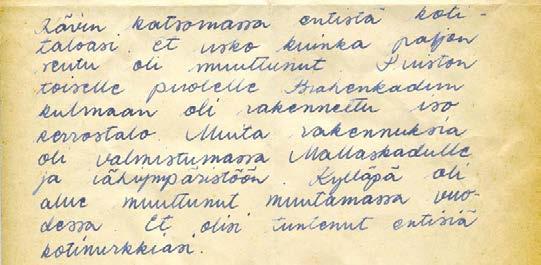 Kävin katsomassa entistä koti-
taloasi. Et usko kuinka paljon
seutu oli muuttunut Puiston
toiselle puolelle Brahenkadun
kulmaan oli rakennettu iso
kerrostalo. Muita rakennuksia
oli valmistumassa Mallaskadulle
ja lähiympäristöön. Kylläpä oli
alue muuttunut muutamassa vuo-
dessa. Et olisi tuntenut entisiä
kotinurkkiasi.